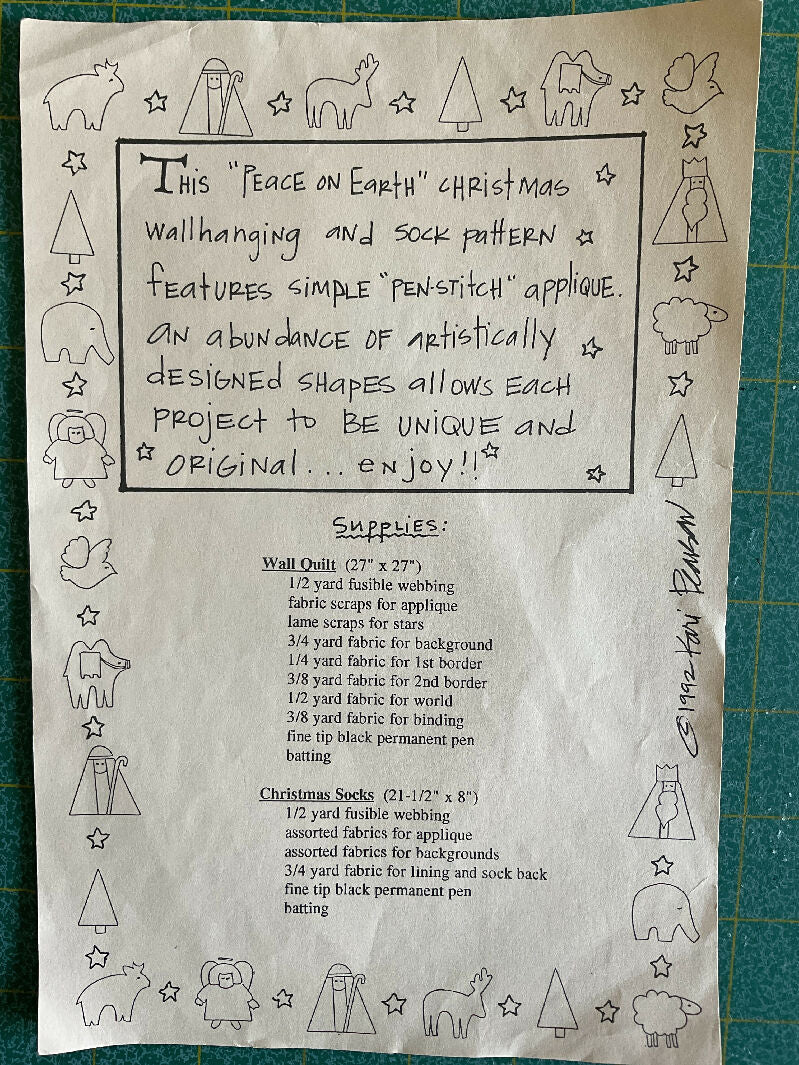 This "Peace on Earth" Christmas
wallhanging and sock pattern
features simple "pen-stitch" applique.
an abundance of artistically
designed shapes allows each
project to be unique and
original... enjoy!!
Supplies:
Wall Quilt (27" x 27")
1/2 yard fusible webbing
fabric scraps for applique
lame scraps for stars
3/4 yard fabric for background
1/4 yard fabric for 1st border
3/8 yard fabric for 2nd border
1/2 yard fabric for world
3/8 yard fabric for binding
fine tip black permanent pen
batting
Christmas Socks (21-1/2" x 8")
1/2 yard fusible webbing
assorted fabrics for applique
assorted fabrics for backgrounds
3/4 yard fabric for lining and sock back
fine tip black permanent pen
batting
©1992 Kari Pearson